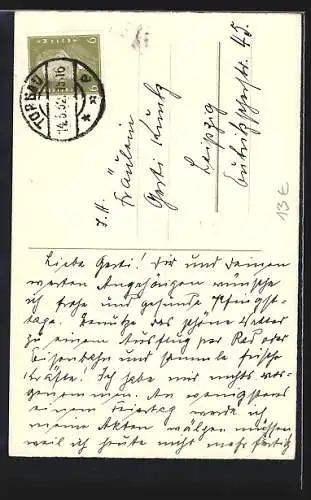 TORGAU
14.5.32.15-16
6
I. H.
Fräulein
Gerti Kuntz
Leipzig
Eutritzscherstr. 45.
13 E
Liebe Gerti! Dir und Deinen
werten Angehörigen wünsche
ich frohe und gesunde Pfingst-
tage. Benutze das schöne Wetter
zu einem Ausflug per Rad oder
Eisenbahn und sammle frische
Kräfte. Ich habe mir nichts vor-
genommen. An wenigstens
einem Feiertag werde ich
meine Akten wälzen müssen
weil ich heute nicht mehr fertig